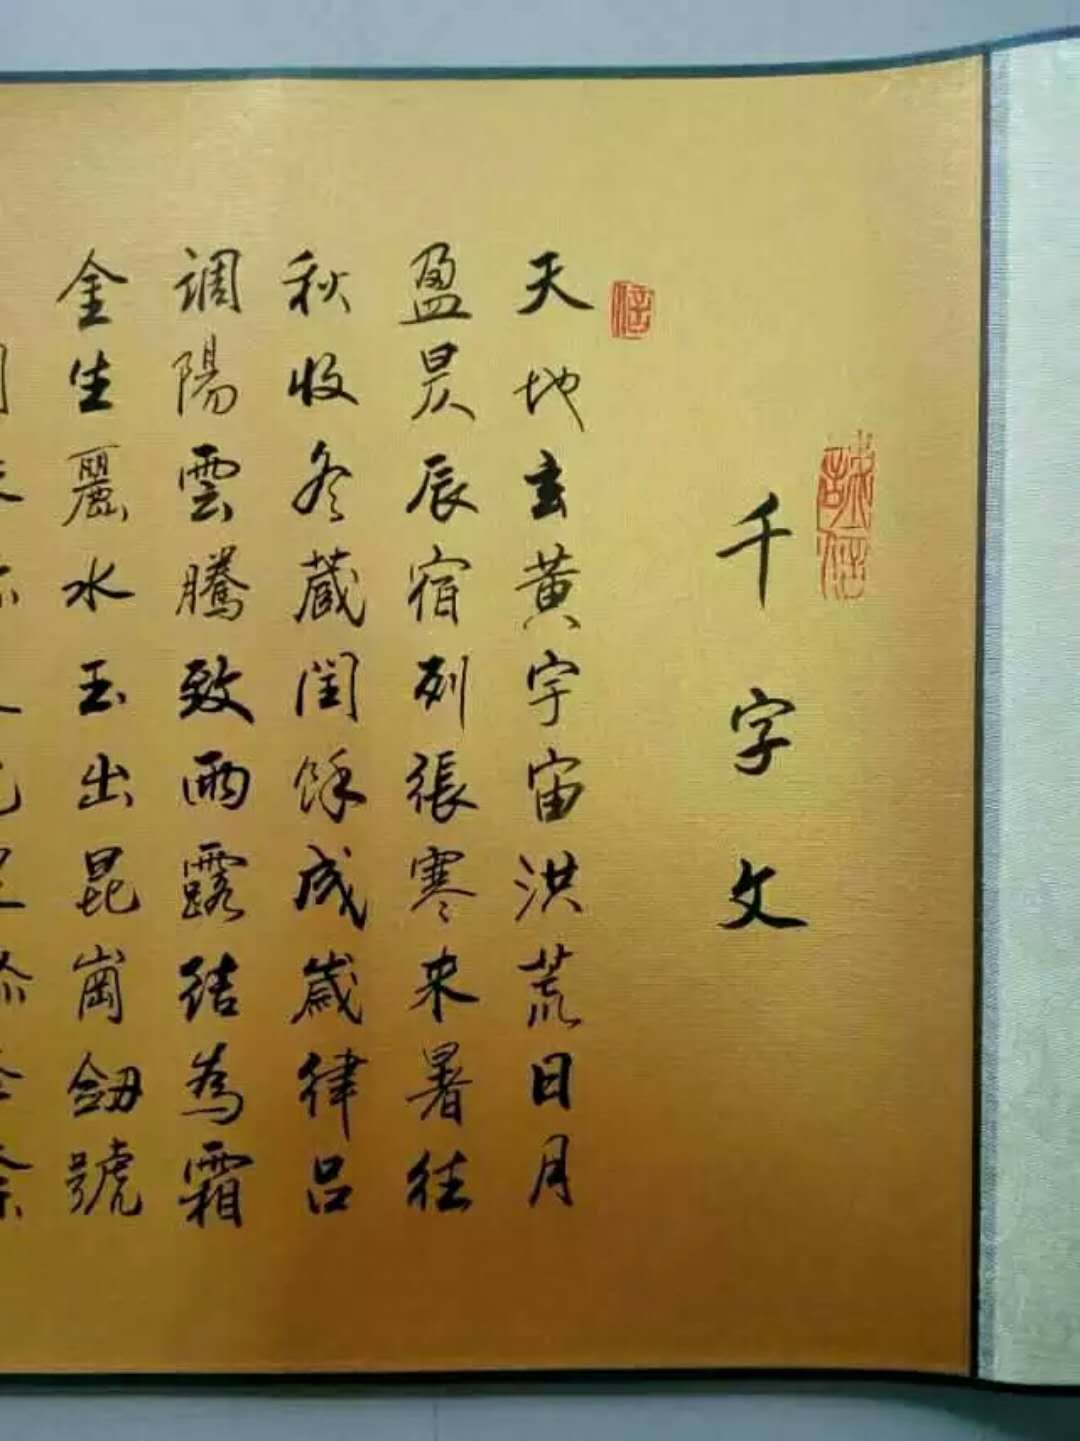 千字文
天地玄黃宇宙洪荒日月
盈昃辰宿列張寒来暑往
秋收冬蔵閏馀成歲律吕
調陽雲騰致雨露结為霜
金生麗水玉出昆崗劒號